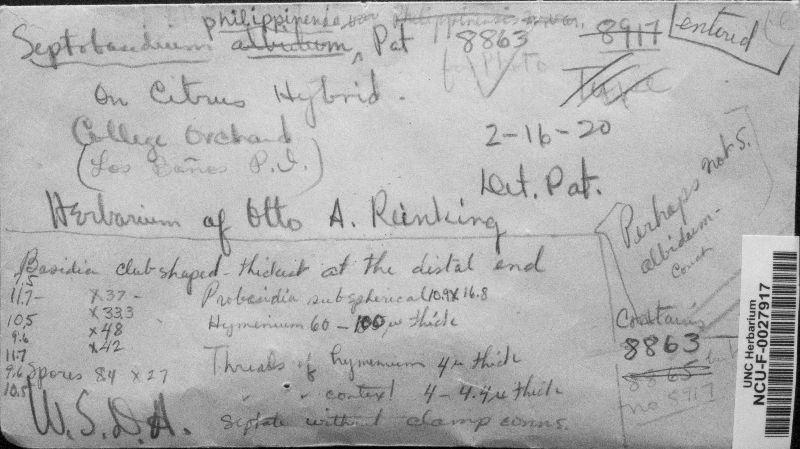 philippinensis var philippinensis n. var.
Septobasidium albidum, Pat 8863 8917 entered
for Photo Type
On Citrus Hybrid.
College Orchard 2-16-20
(Los Baños P.I.)
Det. Pat.
Herbarium of Otto A. Reinking
Perhaps not S.
albidum-
Couch
Basidia club shaped - thickest at the distal end
11.5
11.7- x37- Probasidia subspherical 10.9x16.8
x33.3
10.5 x48 Hymenium 60-100µ thick
9.6 x42
11.7 Threads of hymenium 4µ thick
9.6
Spores 84 x 27
10.5 " " context 4-4.4µ thick
W.S.D.A. septate without clamp conns.
Contains
8863 but
8863
no 8917
UNC Herbarium
NCU-F-0027917